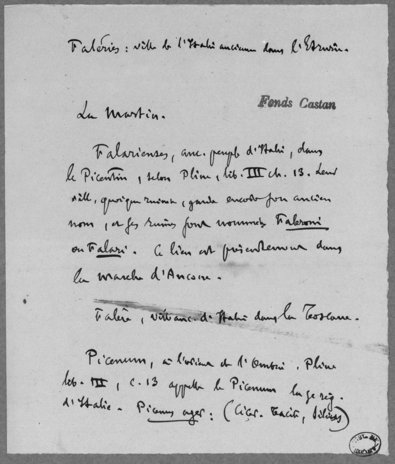 Faléries : ville de l'Italie ancienne dans l'Etrurie.
Fonds Castan
La Martin.
Falarienses, anc. peuple d'Italie, dans
le Picentin, selon Pline, lib. III ch. 13. Leur
ville, quoique ruinée, garde encore son ancien
nom, et ses ruines sont nommées Faleroni
ou Falari. Ce lieu est présentement dans
la marche d'Ancone.
Falère, ville anc. d'Italie dans la Toscane.
Picenum, à l'orient de l'Ombrie. Pline
lib. III, c. 13 appelle le Picenum la 5e rég.
d'Italie. Picenus ager : (Cicer. Tacit,